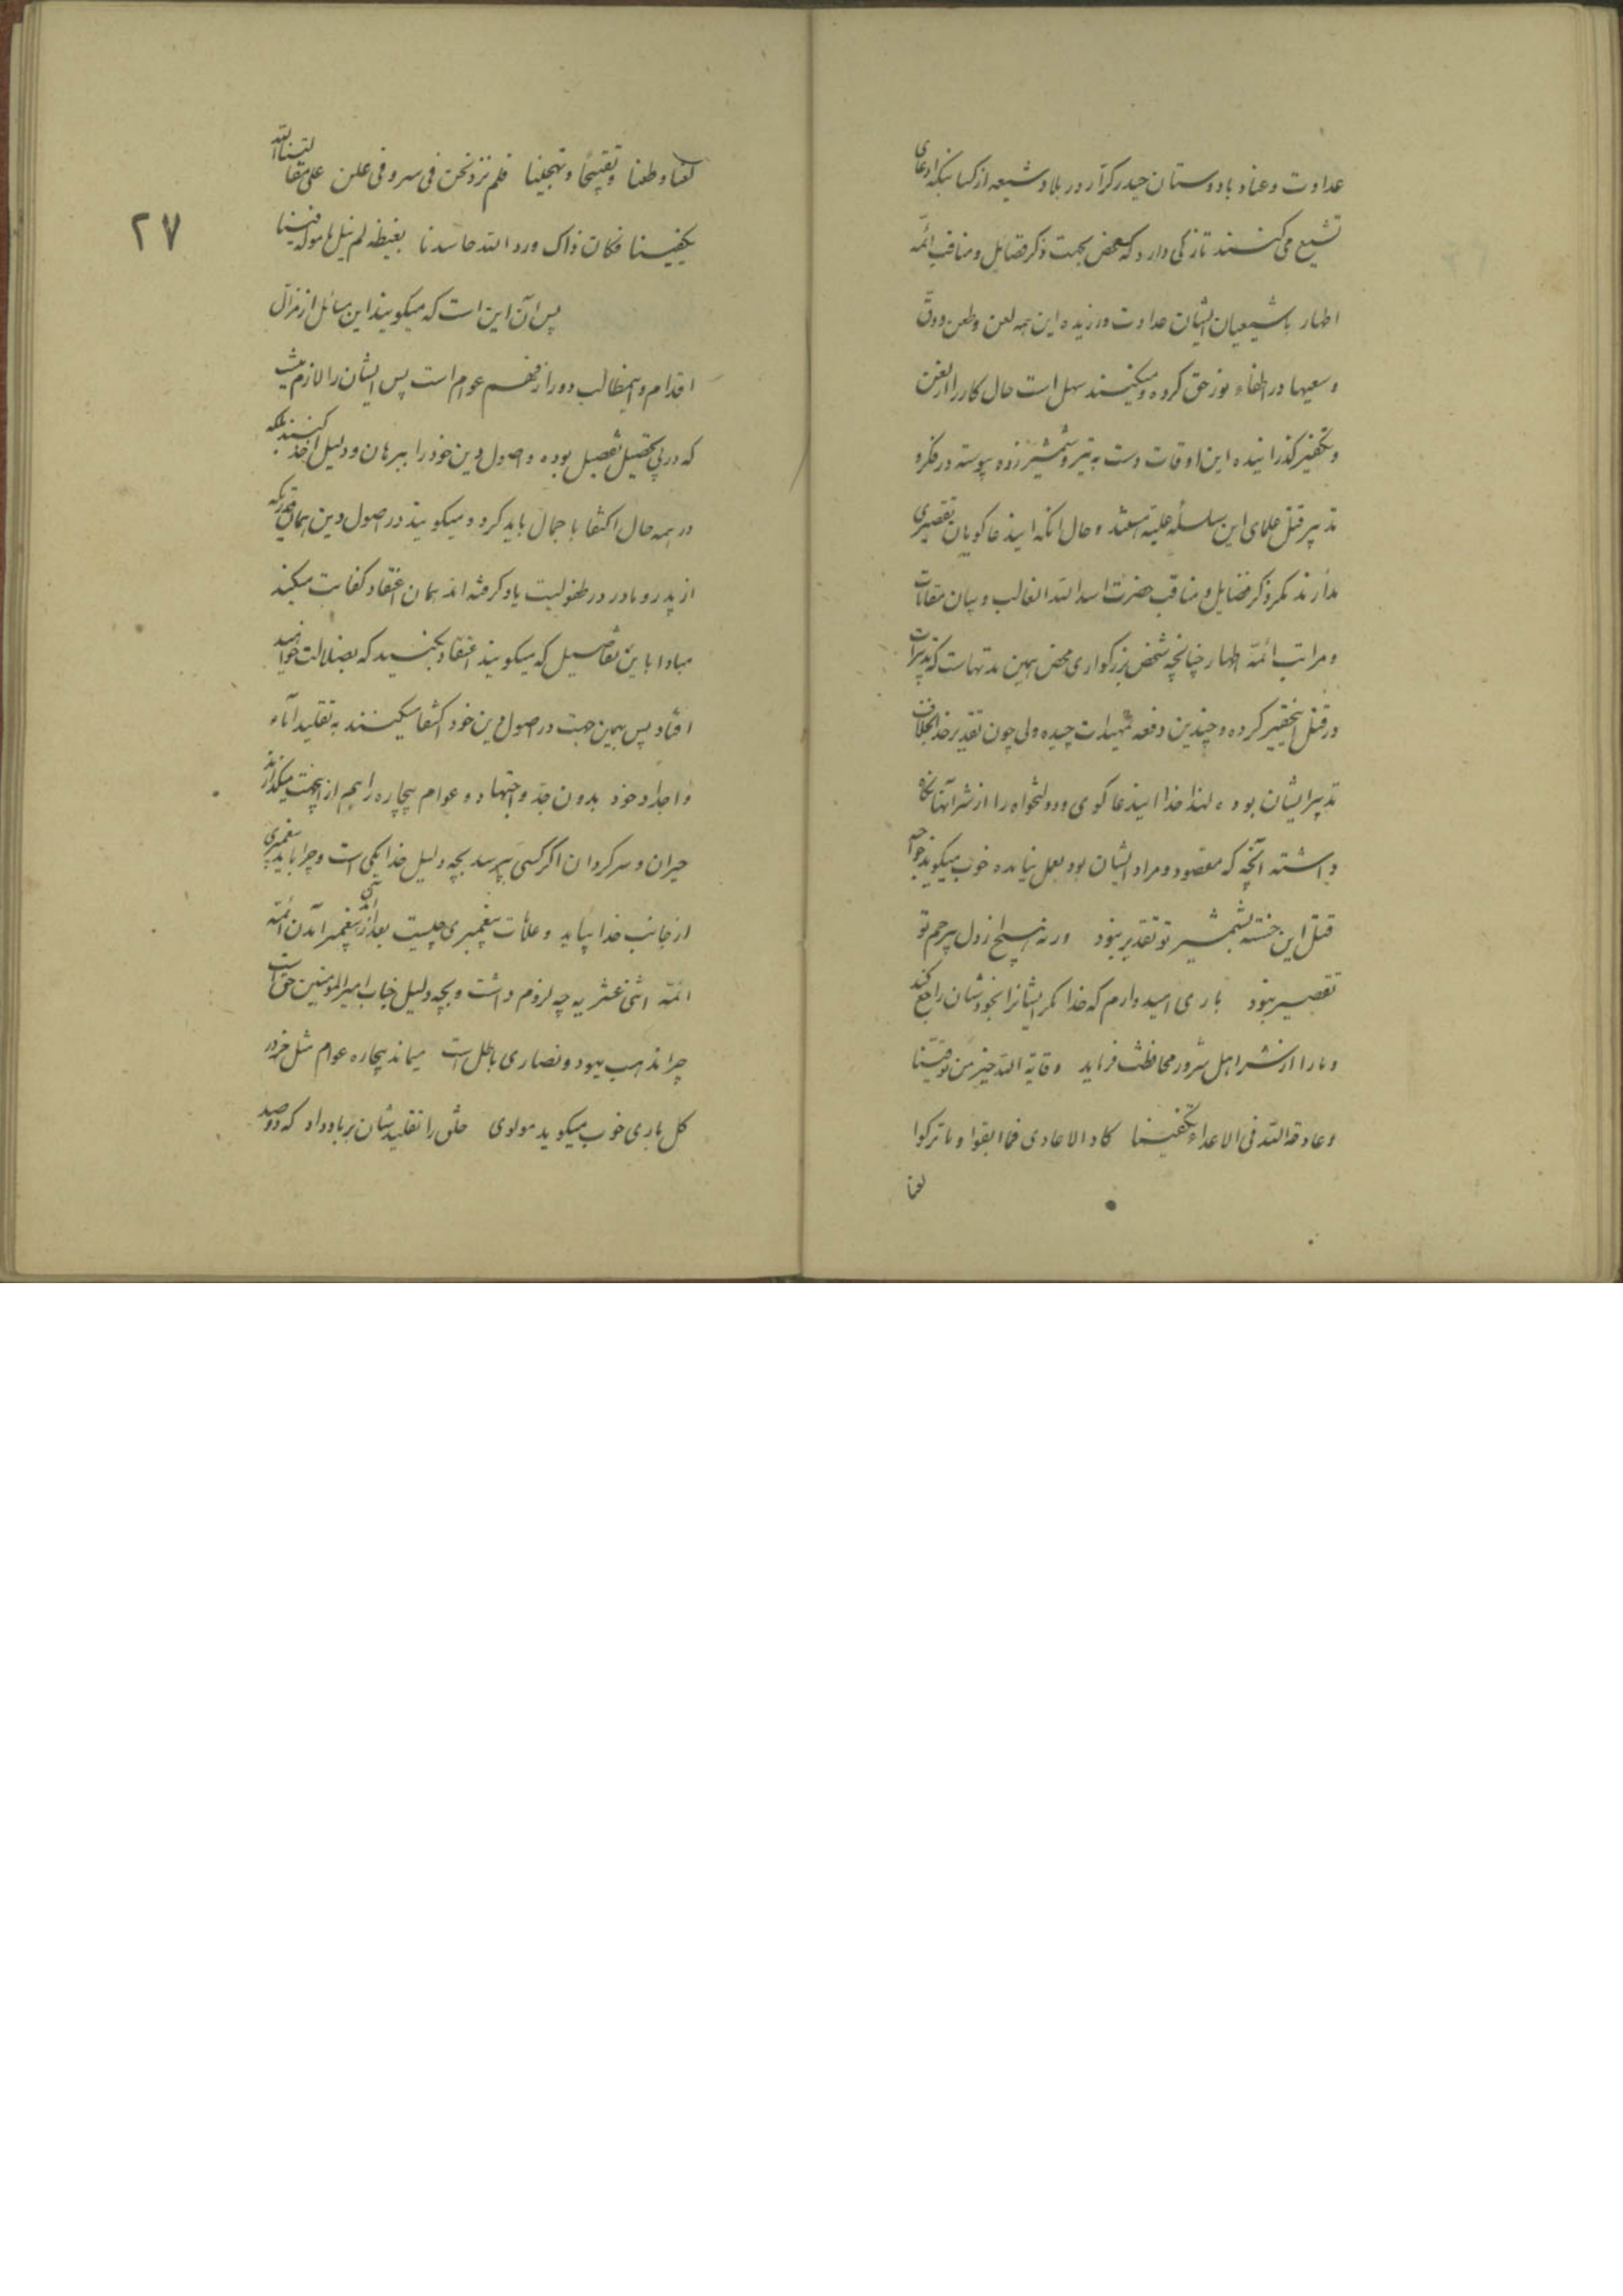 عداوت و عناد با دوستان حیدر کرّار در بلاد شیعه از کسانیکه ادعای
تشیع می کنند تازکی دارد که محض بجهت ذکر فضائل و مناقب ائمّه
اطهار با شیعیان ایشان عداوت ورزیده این همه لعن و طعن و دقّ
و سعیها در اطفاء نور حق کرده و میکنند سهل است حال کار را از لعن
و تکفیر کذرانیده این اوقات دست به تیر و شمشیر زده پیوسته در فکر و
تدبیر قتل علمای این سلسله علیّه هستند و حال انکه ایندعاکویان تقصیری
ندارند مکر ذکر فضایل و مناقب حضرت اسد الله الغالب و بیان مقامات
و مراتب ائمّه اطهار چنانچه شخص بزرکواری محض همین مدتهاست که تدبیرات
در قتل اینحقیر کرده و چندین دفعه تمهیدات چیده ولی چون تقدیر خدا بخلاف
تدبیر ایشان بوده لهذا خدا ایندعاکوی و دولتخواه را از شر آنها نکاه
داشته آنچه که مقصود و مراد ایشان بود بعمل نیامده خوب میکوید خواجه
قتل این خسته بشمشیر تو تقدیر نبود ورنه هیچ از دل بیرحم تو
تقصیر نبود باری امیدوارم که خدا مکر ایشانرا بخودشان راجع کند
و ما را از شر اهل شرور محافظت فرماید وقایة الله خیر من توقّینا
و عادة الله فی الاعداء تکفینا کاد الاعادی فما ابقوا و ما ترکوا
لعنا
لعنا و طعنا و تقبیحًا و تهجینا فلم نزد نحن فی سر و فی علن علی مقالتنا الله
یکفینا فکان ذاک ورد الله حاسدنا بغیظه لم ینل مامولة فینا
پس آن این است که میکویند این مسائل از مزالّ
اقدام و اینمطالب دور از فهم عوام است پس ایشان را لازم نیست
که در پی تحصیل تفصیل بوده و اصول دین خود را ببرهان و دلیل اخذ کنند بلکه
در همه حال اکتفا باجمال باید کرد و میکویند در اصول دین همان قدریکه
از پدر و مادر در طفولیت یاد کرفته اند همان اعتقاد کفایت میکند
مبادا باین تفاصیل که میکویند اعتقاد بکنید که بضلالت خواهید
افتاد پس بهمین جهت در اصول دین خود اکتفا میکنند به تقلید آباء
و اجداد خود بدون جدّ و اجتهاد و عوام بیچاره را هم از اینجهت میکذارند
حیران و سرکردان اکر کسی بپرسد بچه دلیل خدا یکی است و چرا باید پیغمبری
از جانب خدا بیاید و علامات پیغمبری چیست بعد از پیغمبر آمدن ائمّه
ائمّه اثنی عشریه چه لزوم داشت و بچه دلیل جناب امیر المؤمنین حق است
چرا مذهب یهود و نصاری باطل است میماند بیچاره عوام مثل خر در
کل باری خوب میکوید مولوی خلق را تقلیدشان بر باد داد که دو صد
۲۷